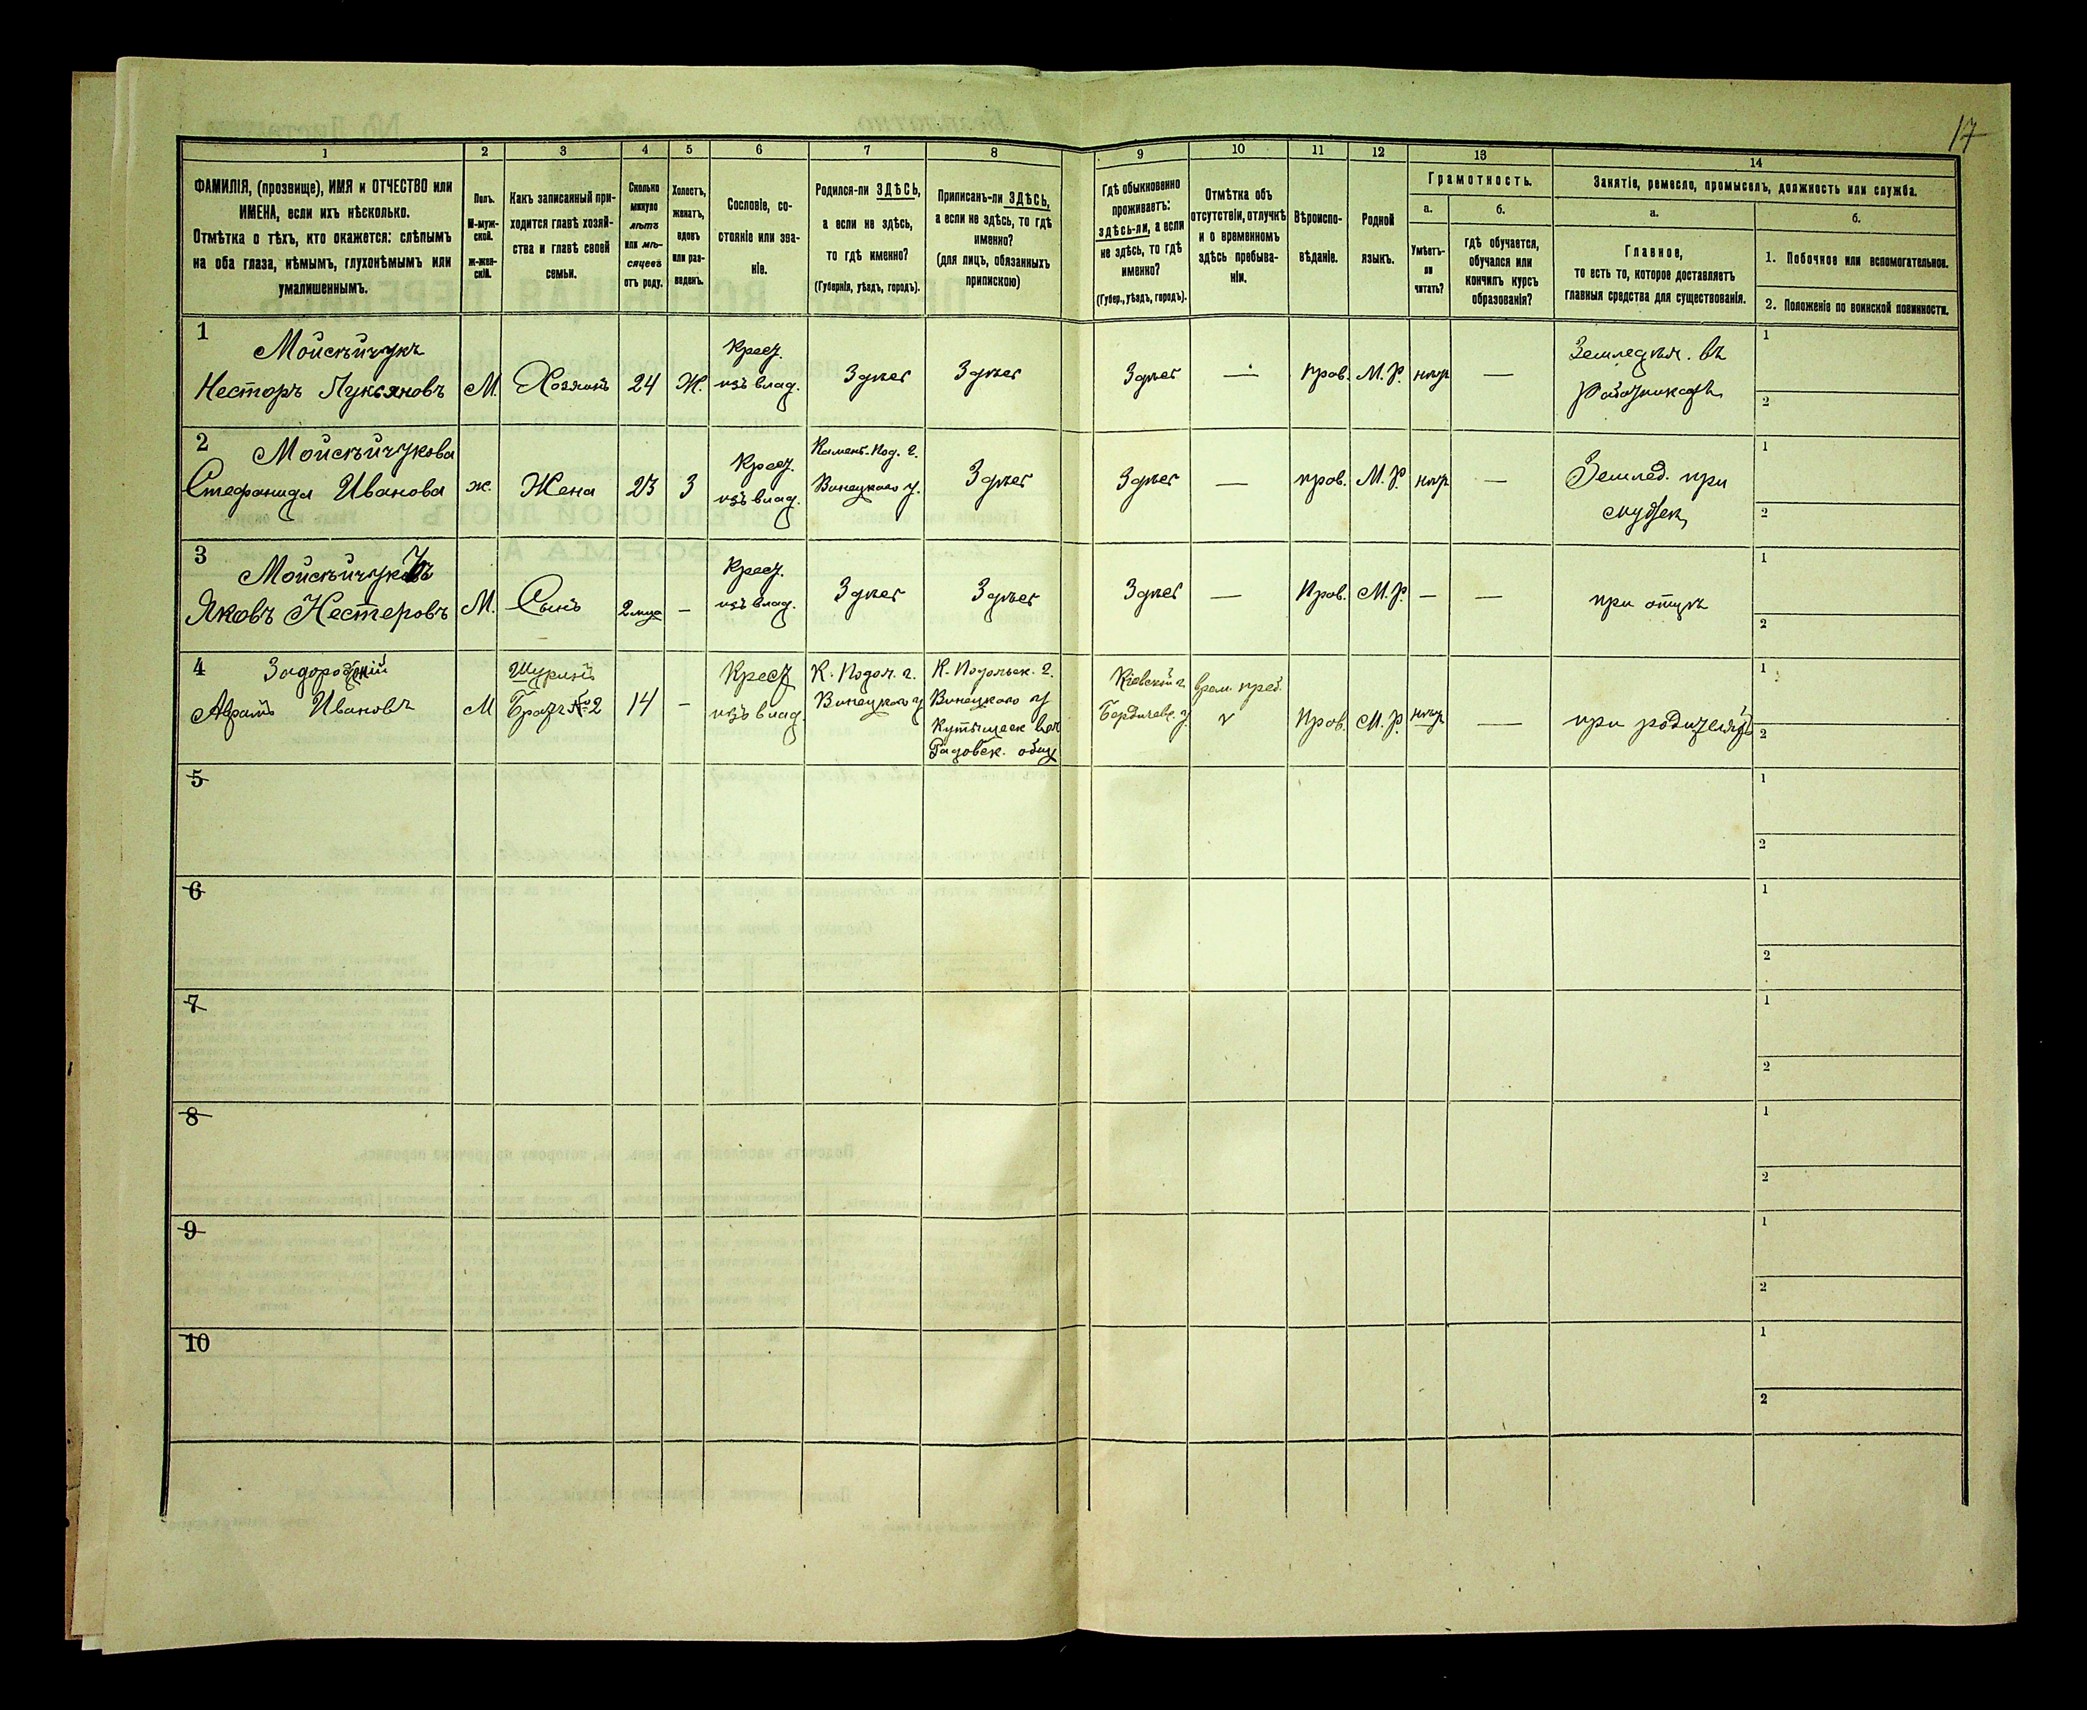 17
1
2
3
4
5
6
7
8
9
10
11
12
13
14
ФАМИЛІЯ, (прозвище), ИМЯ и ОТЧЕСТВО или
ИМЕНА, если ихъ нѣсколько.
Отмѣтка о тѣхъ, кто окажется: слѣпымъ
на оба глаза, нѣмымъ, глухонѣмымъ или
умалишеннымъ.
Полъ.
М-муж-
ской.
ж-жен-
скій.
Какъ записанный при-
ходится главѣ хозяй-
ства и главѣ своей
семьи.
Сколько
минуло
лѣтъ
или мѣ-
сяцевъ
отъ роду.
Холостъ,
женатъ,
вдовъ
или раз-
веденъ.
Сословіе, со-
стояніе или зва-
ніе.
Родился-ли ЗДѢСЬ,
а если не здѣсь,
то гдѣ именно?
(Губернія, уѣздъ, городъ).
Приписанъ-ли ЗДѢСЬ,
а если не здѣсь, то гдѣ
именно?
(для лицъ, обязанныхъ
припискою)
Гдѣ обыкновенно
проживаетъ:
здѣсь-ли, а если
не здѣсь, то гдѣ
именно?
(Губер., уѣздъ, городъ).
Отмѣтка объ
отсутствіи, отлучкѣ
и о временномъ
здѣсь пребыва-
ніи.
Вѣроиспо-
вѣданіе.
Родной
языкъ.
Грамотность.
а.
Умѣетъ-
ли
читать?
б.
гдѣ обучается,
обучался или
кончилъ курсъ
образованія?
Занятіе, ремесло, промыселъ, должность или служба.
а.
Главное,
то есть то, которое доставляетъ
главныя средства для существованія.
б.
1. Побочное или вспомогательное.
2. Положеніе по воинской повинности.
1
Мойсѣйчукъ
Несторъ Лукьяновъ
М.
Хозяинъ
24
Ж.
Крест.
изъ влад.
Здѣсь
Здѣсь
Здѣсь
—
прав.
М. Р.
нѣтъ
—
Земледѣл. въ
работникахъ
1
2
2
Мойсѣйчукова
Стефанида Иванова
ж.
Жена
23
З
Крест.
изъ влад.
Камен.-Под. г.
Винецкаго у.
Здѣсь
Здѣсь
—
прав.
М. Р.
нѣтъ
—
Землед. при
мужѣ
1
2
3
Яковъ Нестеровъ
М.
Сынъ
2 мца
–
Крест.
изъ влад.
Здѣсь
Здѣсь
Здѣсь
—
Прав.
М. Р.
–
—
при отцѣ
1
2
4
Задорожній
Авраамъ Ивановъ
М
Шуринъ
Братъ №2
14
–
Крест
изъ влад.
К. Подол. г.
Винецкаго у
К. Подольск. г.
Винецкаго у
вол
общ
Кіевской г.
Бердичевс. у
врем. преб.
v
Прав.
М. Р.
нѣтъ
—
при родителяхъ
1
2
5
1
2
6
1
2
7
1
2
8
1
2
9
1
2
10
1
2